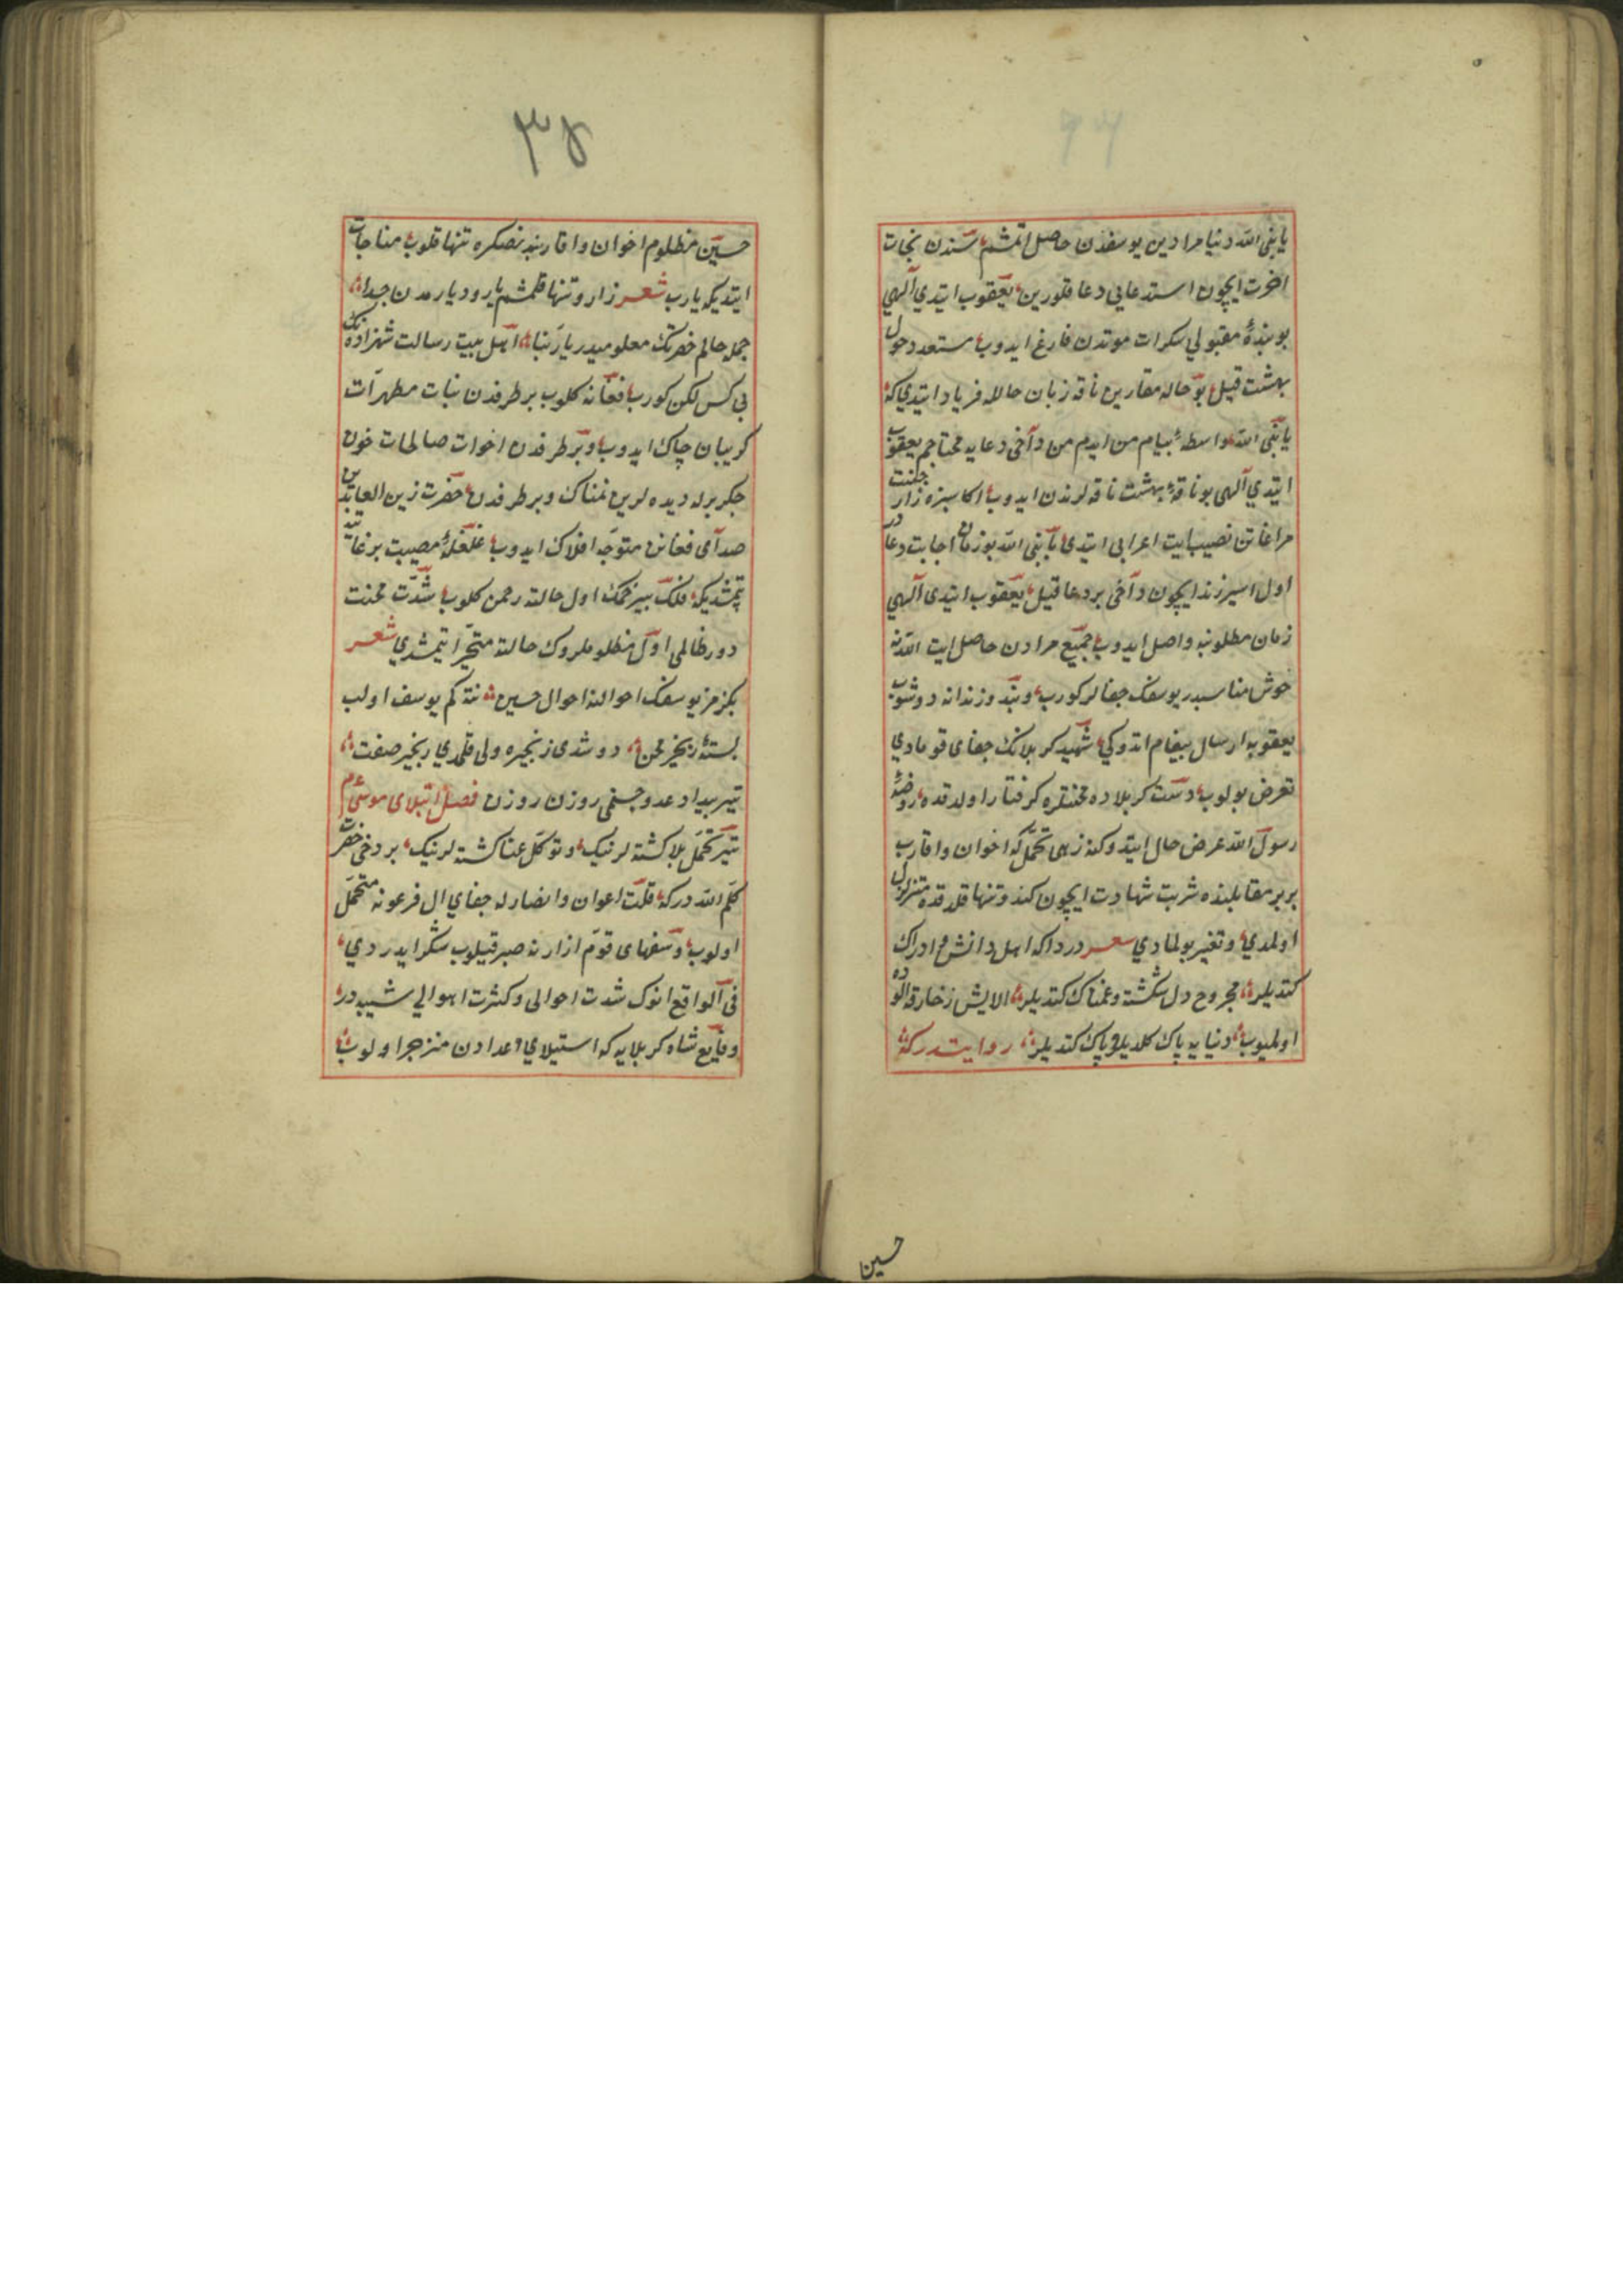 یا نبی الله دنیا مرادین یوسفدن حاصل اتمشم سندن نجات
اخرت ایچون استدعایی دعا قلورین یعقوب ایتدی الهی
بو بندهٔ مقبولی سکرات موتدن فارغ ایدوب مستعد دخول
بهشت قیل بو حاله مقارین ناقه زبان حالله فریاد ایتدی که
یا نبی الله واسطهٔ پیام من ایدم من دآخی دعایه محتاجم یعقوب
ایتدی الهی بو ناقهٔ بهشت ناقه لرندن ایدوب اکا سبزه زار جنت
مراغاتن نصیب ایت اعرابی ایتدی یا نبی الله بو زمان اجابت دعادر
اول اسیر زندان ایچون دآخی بر دعا قیل یعقوب ایتدی الهی
زمان مطلوبنه واصل ایدوب جمیع مرادن حاصل ایت الله نه
خوش مناسبدر یوسفک جفالر کورب و بند و زندانه دوشوب
یعقوبه ارسال پیغام اتدوکی شهید کربلانک جفای قوم ادی
تعرض بولوب دشت کربلاده محنتلره کرفتار اولدقده روضهٔ
رسول الله عرض حال ایتدوکنه زهی تحمل که اخوان و اقارب
بربر مقابلنده شربت شهادت ایچون کند و تنها قلدقده متزلزل
اولمدی و تغیر بولمادی شعر درداکه اهل دانش و ادراک
کتدیلر مجروح دل شکشته و غمناک کتدیلر الایش زخارفه الوده
اولمیوب دنیایه پاک کلدیلر و پاک کتدیلر روایتدر که
حسین
٣٤
حسین مظلوم اخوان و اقاربندنصکره تنها قلوب مناجات
ایتدیکه یارب شعر زار و تنها قلمشم یار و دیارمدن جدا
جمله حالم حضرتک معلومیدر یا ربنا اهل بیت رسالت شهزاده نک
بی کس لکن کورب فغانه کلوب بر طرفدن بنات مطهرات
کریبان چاک ایدوب و بر طرفدن اخوات صالحات خون
جکر برله دیده لرین نمناک و بر طرفدن حضرت زین العابدین
صدآی فغانن متوجه افلاک ایدوب غلغلهٔ مصیبت بر غایته
یتمشدیکه فلک بیرحمک اول حالته رحمن کلوب شدت محنت
دور ظالمی اول مظلوملروک حالته متحیر ایتمشدی شعر
بکزمز یوسفک احوالنه احوال حسین نته کم یوسف اولب
بستهٔ زنجیر محن دوشدی زنجیره ولی قلمدی زنجیر صفت
تیر بیداد عدو جسمی روزن روزن فصل ابتلای موسی عم
تیر تحمل بلا کشته لرنیک و توکل عنا کشته لرنیک بر دخی حضرت
کلم الله درکه قلت اعوان و انصارله جفای ال فرعونه متحمل
اولوب و سفهای قوم ازارنه صبر قیلوب شکر ایدردی
فی الواقع انوک شدت احوالی و کثرت اهوالی شبیه در
وقایع شاه کربلایه که استیلای اعدادن منزجر اولوب